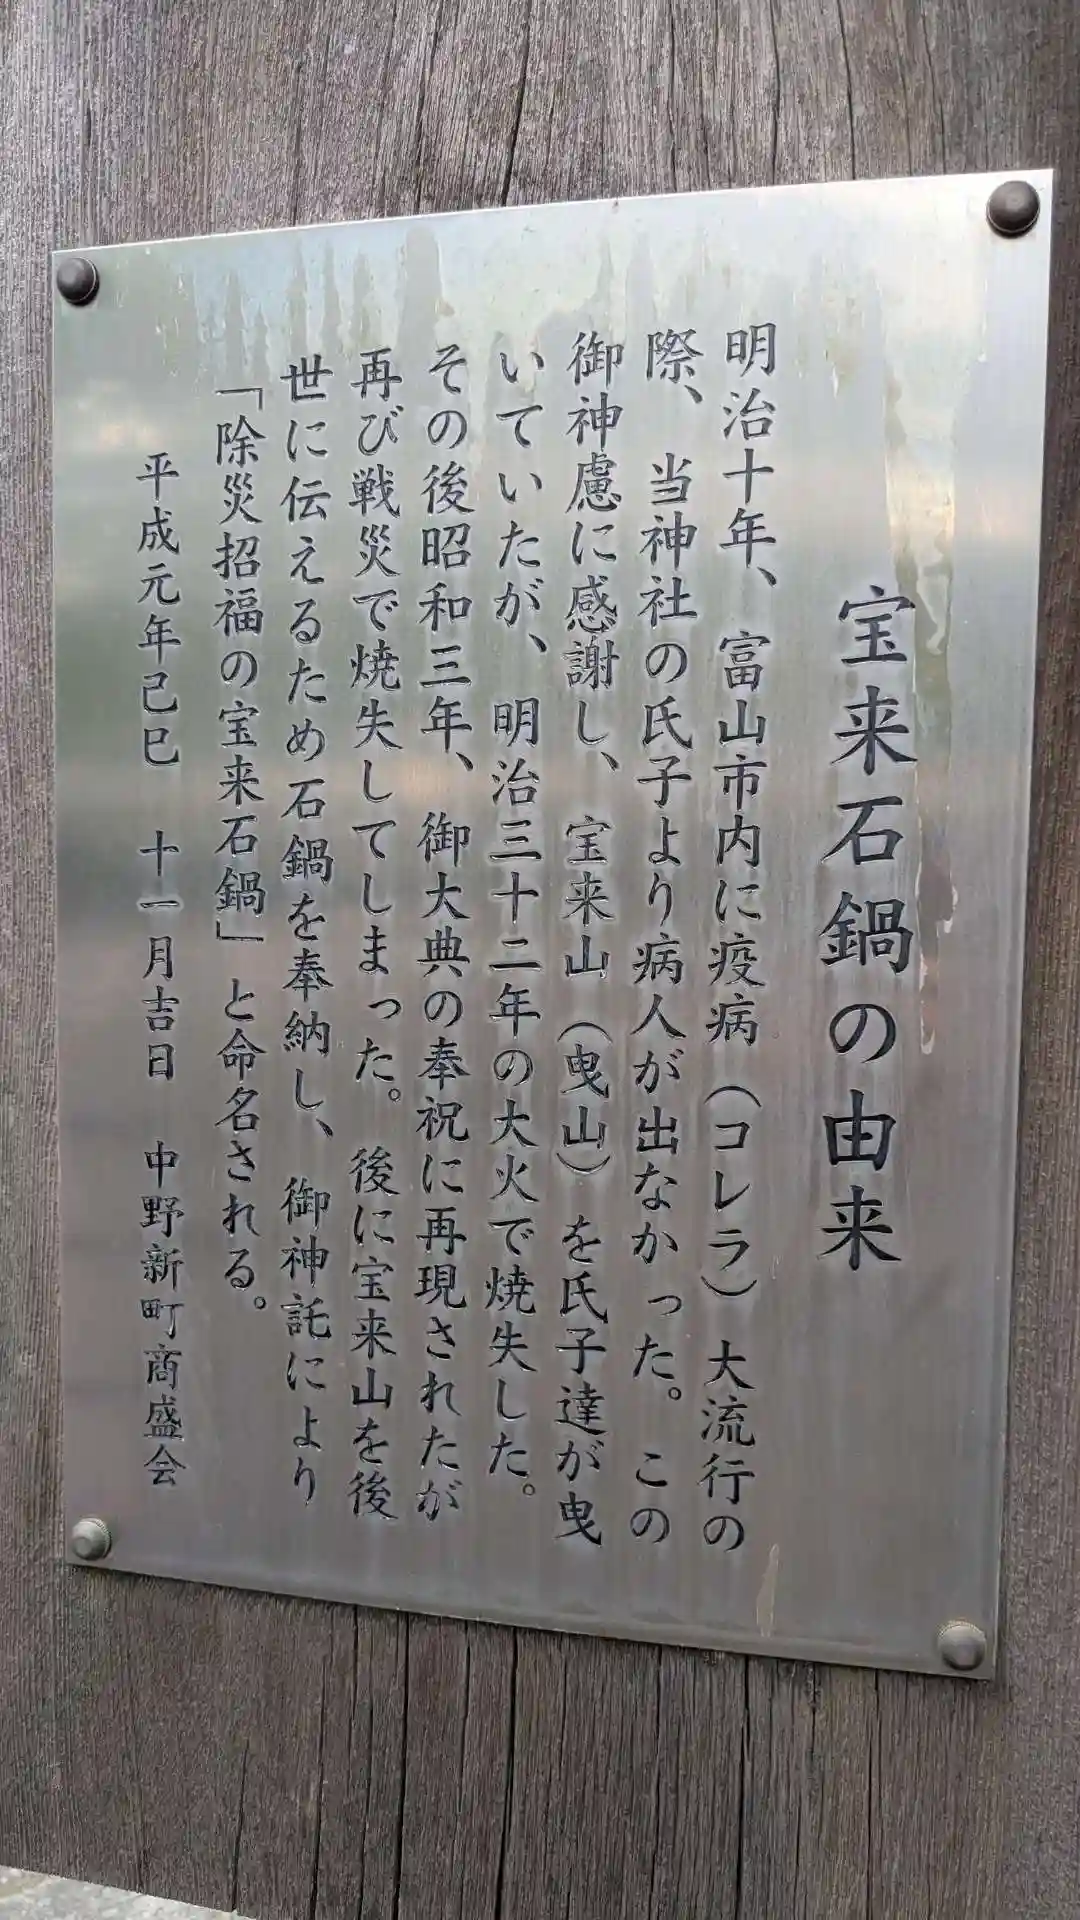 宝来石鍋の由来
明治十年、富山市内に疫病（コレラ）大流行の
際、当神社の氏子より病人が出なかった。この
御神慮に感謝し、宝来山（曳山）を氏子達が曳
いていたが、明治三十二年の大火で焼失した。
その後昭和三年、御大典の奉祝に再現されたが
再び戦災で焼失してしまった。後に宝来山を後
世に伝えるため石鍋を奉納し、御神託により
「除災招福の宝来石鍋」と命名される。
平成元年己巳　十一月吉日　中野新町商盛会